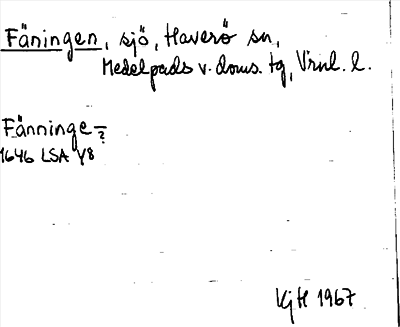 Fäningen, sjö, Haverö sn,
Medelpads v. doms. tg, Vrnl. l.
Fänninge-
?
1646 LSA Y8
KjH 1967